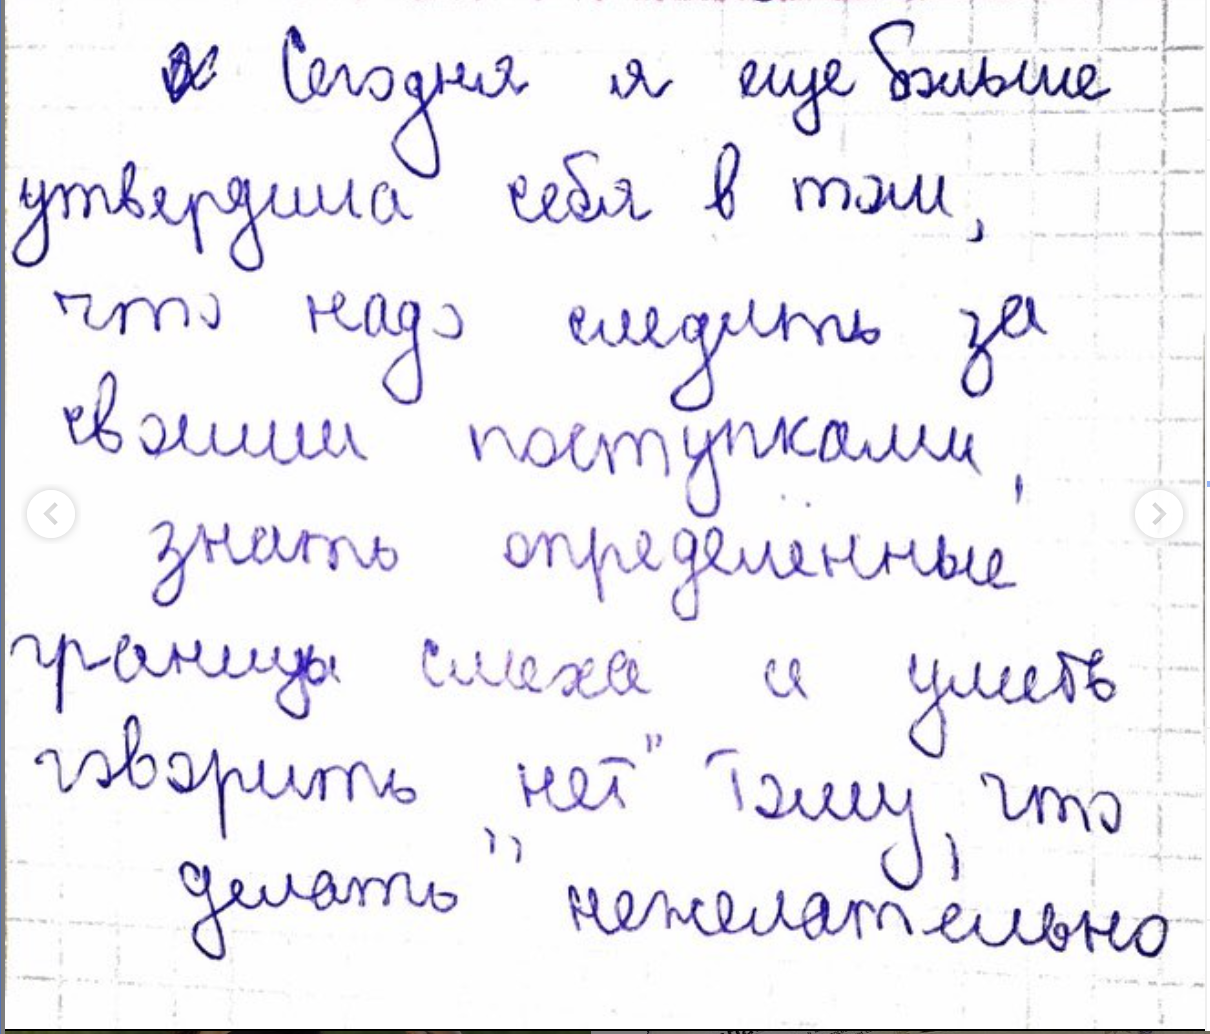 Сегодня я еще больше
утвердила себя в том,
что надо следить за
своими поступками,
знать определённые
границы смеха и уметь
говорить „нет" тому, что
делать нежелательно